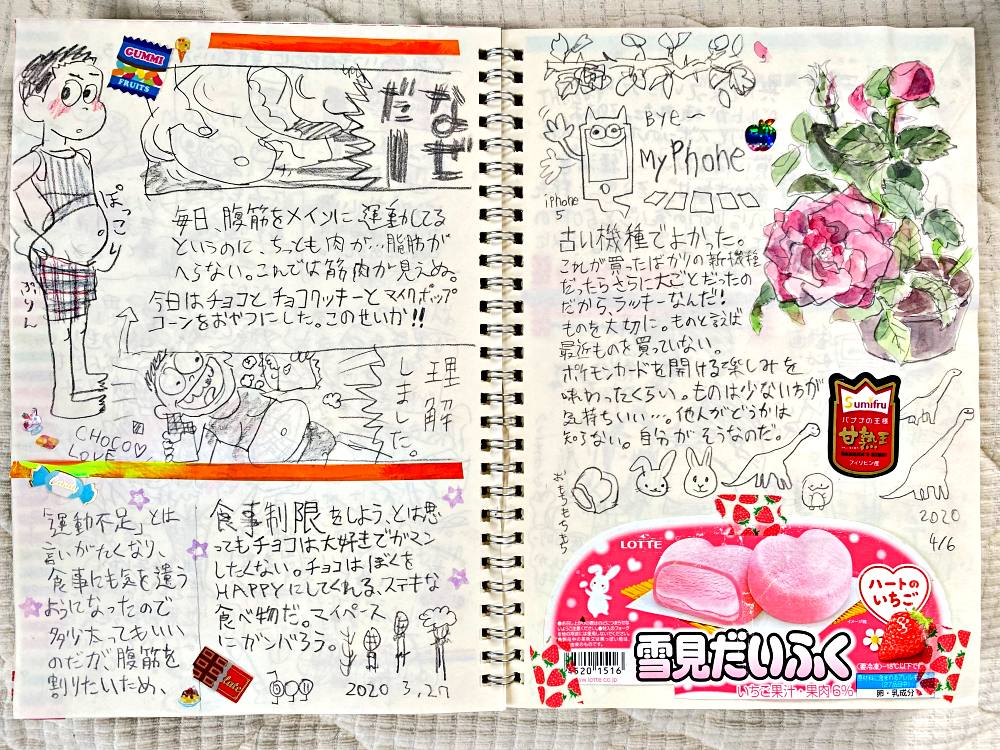 GUMMI
FRUITS
なぜ
だ!!
ぽっこり
ぷりん
毎日、腹筋をメインに運動してる
というのに、ちっとも肉が…脂肪が
へらない。これでは筋肉が見えぬ。
今日はチョコとチョコクッキーとマイクポップ
コーンをおやつにした。このせいか!!
理解
しました。
CHOCO
LOVE
「運動不足」とは
言いがたくなり、
食事にも気を遣う
ようになったので
多少太ってもいい
のだが、腹筋を
割りたいため、
食事制限をしよう、とは思
ってもチョコは大好きでガマン
したくない。チョコはぼくを
HAPPYにしてくれる、ステキな
食べ物だ。マイペース
にガンバろう。
2020 3,27
BYE〜
My Phone
iPhone
5
古い機種でよかった。
これが買ったばかりの新機種
だったらさらに大ごとだったの
だから、ラッキーなんだ!
ものを大切に。ものと言えば
最近ものを買っていない。
ポケモンカードを開ける楽しみを
味わったくらい。ものは少ないほうが
気持ちいい…。他人がどうかは
知らない。自分がそうなのだ。
Sumifru
バナナの王様
甘熟王
フィリピン産
おもちもちもち
2020
4/6
LOTTE
ハートの
いちご
雪見だいふく
いちご果汁・果肉6%
(要冷凍)-18℃以下
卵・乳成分
620"1516
www.lotte.co.jp